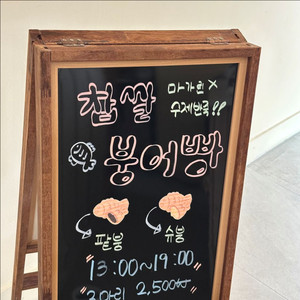 찹쌀
마가린 X
수제반죽!!
붕어빵
팥붕
슈붕
13:00~19:00
3마리 2,500₩